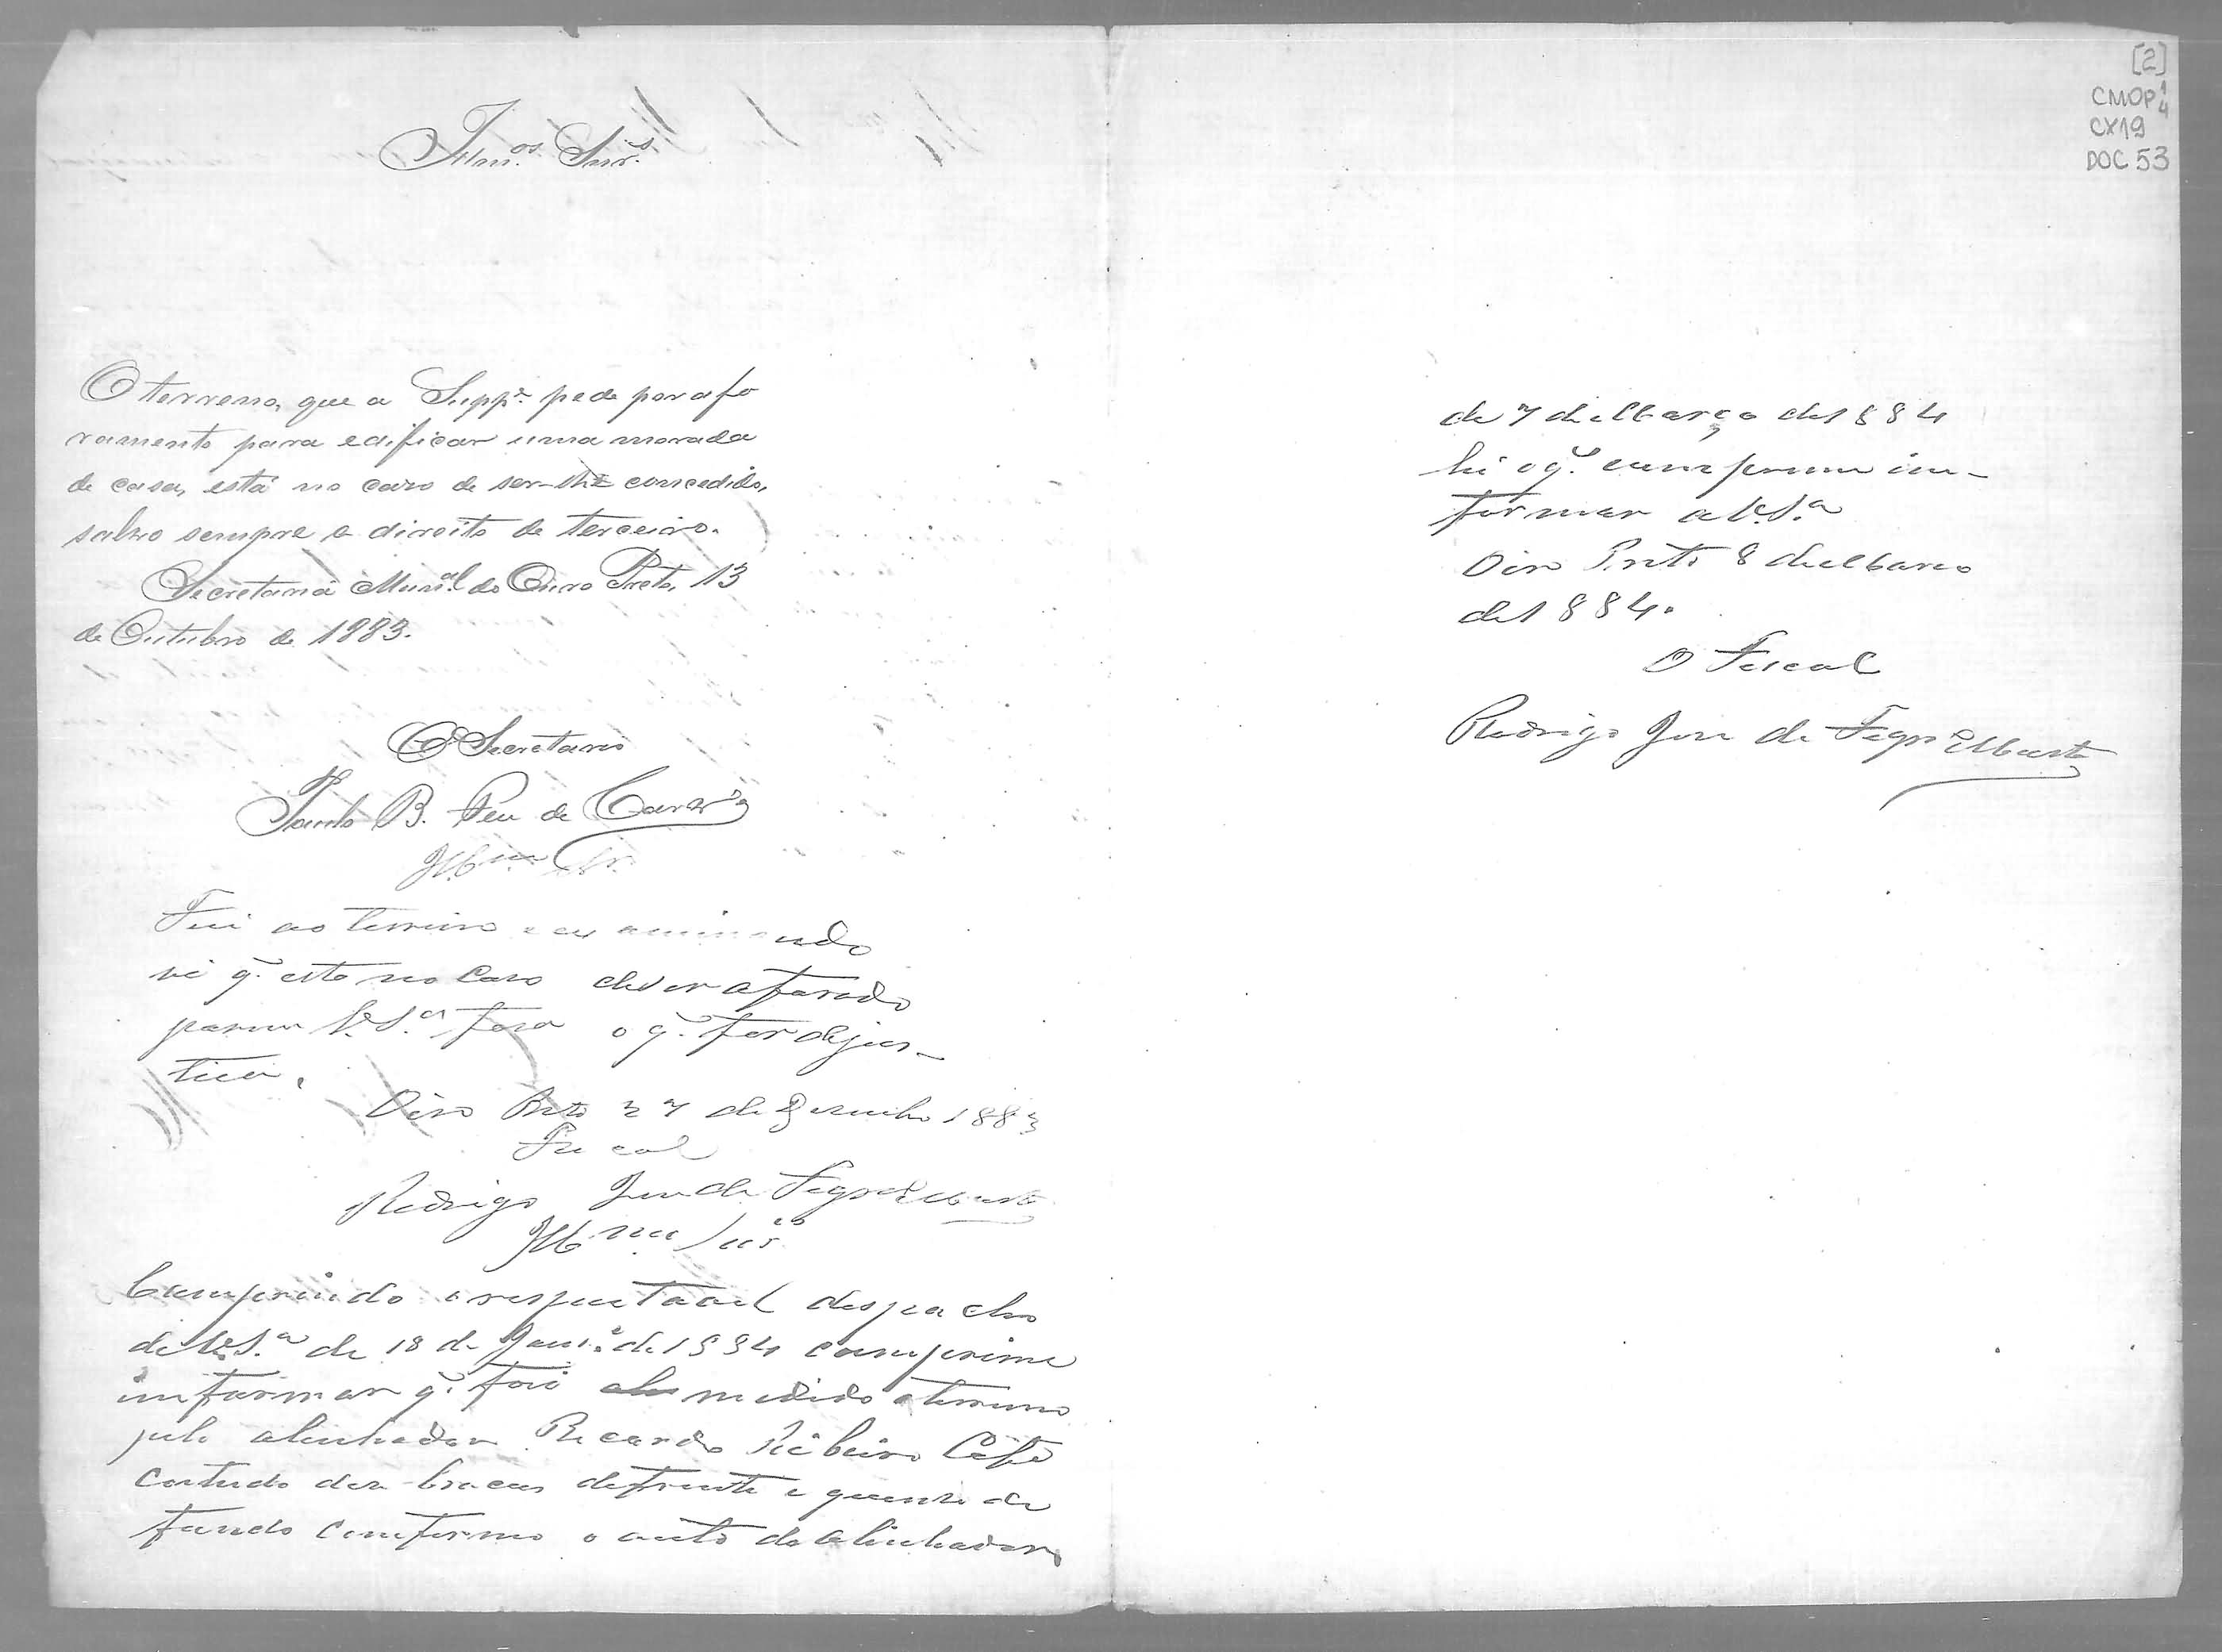 Illm.os Snr.s
O terreno, que a Supp.e pede por afo
ramento para edificar uma morada
de casa, está no caso de ser-lhe concedido,
salvo sempre o direito de terceiro.
Secretaria Mun.al do Ouro Preto, 13
de Outubro de 1883.
O Secretario
Paulo B.
Ill.mo Sr.
Fui ao terreno e examinando
vi q. esta no caso de ser aforado
porem V.S.a fara o q. for de jus-
tica.
Oiro Preto 27 de Dezembro 1883
Fiscal
Rodrigo Jose de
Ill.mo Snr.es
Comprindo o respeitavel despacho
de V.S.a de 18 de Janr.o de 1884 comprime
informar q. foi medido o terreno
pelo alinhador Ricardo Ribeiro
contendo des bracas de frente e quinze de
fundo comforme o auto do alinhador
[2]
CMOP 1 4
CX19
DOC 53
de 7 de Março de 1884
hé o q. cumpreme in-
formar a V.S.a
Oiro Preto 8 de Marco
de 1884.
O Fiscal
Rodrigo Jose de